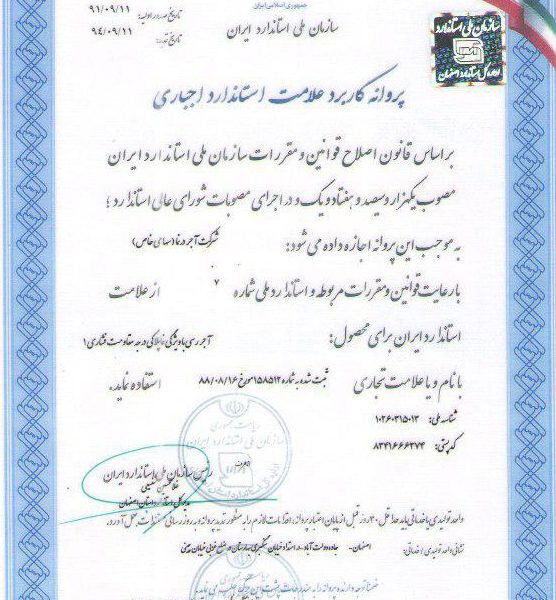 جمهوری اسلامی ایران
سازمان ملی استاندارد ایران
تاریخ صدور اولیه: ۹۱/۰۹/۱۱
تاریخ تمدید: ۹۴/۰۹/۱۱
سازمان ملی استاندارد
اداره کل استاندارد اصفهان
پروانه کاربرد علامت استاندارد اجباری
بر اساس قانون اصلاح قوانین و مقررات سازمان ملی استاندارد ایران
مصوب یکهزار و سیصد و هفتاد و یک و در اجرای مصوبات شورای عالی استاندارد ؛
به موجب این پروانه اجازه داده می شود: شرکت آجر درنا (سهامی خاص)
با رعایت قوانین و مقررات مربوطه و استاندارد ملی شماره ۷ از علامت
استاندارد ایران برای محصول: آجر رسی با ویژگی نماپلاکی درجه مقاومت فشاری ۱
با نام و یا علامت تجاری ثبت شده به شماره ۱۵۸۵۱۲ مورخ ۸۸/۰۸/۱۶ استفاده نماید.
شناسه ملی: ۱۰۲۶۰۳۱۵۰۱۳
کد پستی: ۸۳۴۱۶۶۶۳۷۴
ریاست جمهوری
سازمان ملی استاندارد ایران
از طرف
رئیس سازمان ملی استاندارد ایران
مدیر کل استاندارد استان اصفهان
واحد تولیدی یا خدماتی باید حداقل ۳۰ روز قبل از پایان اعتبار پروانه، اقدامات لازم را به منظور تمدید پروانه و به روز رسانی مستندات به عمل آورد.
نشانی واحد تولیدی / خدماتی: اصفهان- جاده دولت آباد-